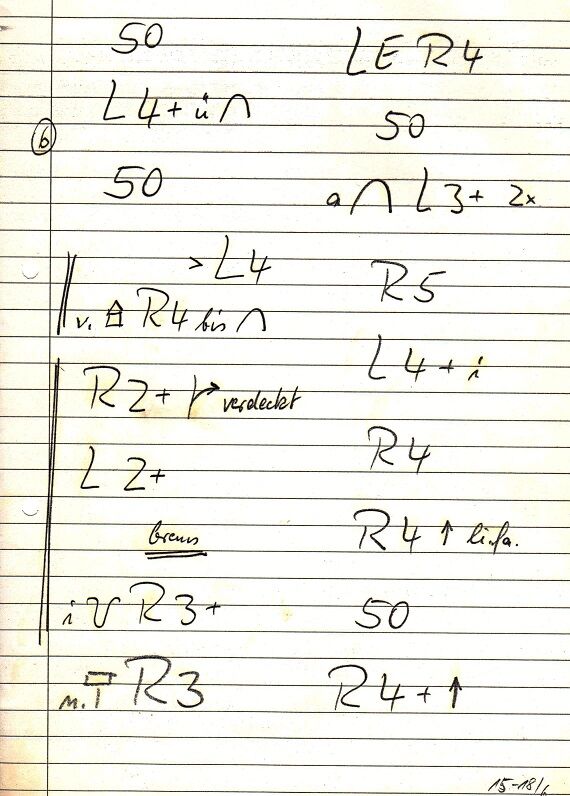 50
L4+ ü ∩
6
50
> L4
v. R4 bis ∩
R2+ verdeckt
L 2+
brems
i V R3+
n. R3
LE R4
50
a ∩ L3+ 2x
R5
L4+ i
R4
R4 ↑ li.fa.
50
R4+ ↑
15-18/6